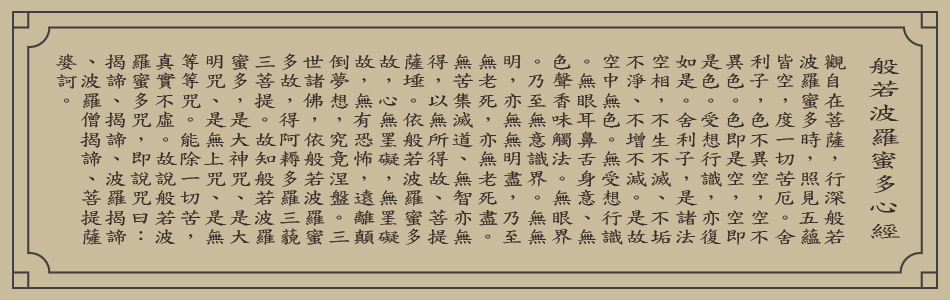 般若波羅蜜多心經
觀自在菩薩，行深般若
波羅蜜多時，照見五蘊
皆空，度一切苦厄。舍
利子，色不異空，空不
異色。色即是空，空即
是色。受想行識，亦復
如是。舍利子，是諸法
空相，不生不滅、不垢
不淨、不增不減。是故
空中無色。無受想行識
。無眼耳鼻舌身意、無
色聲香味觸法。無眼界
。乃至無意識界。無無
明，亦無無明盡，乃至
無老死，亦無老死盡。
無苦集滅道、無智亦無
得，以無所得故、菩提
薩埵。依般若波羅蜜多
故，心無罣礙，無罣礙
故，無有恐怖，遠離顛
倒夢想，究竟涅盤。三
世諸佛，依般若波羅蜜
多故，得阿耨多羅三藐
三菩提。故知般若波羅
蜜多，是大神咒、是大
明咒、是無上咒、是無
等等咒。能除一切苦，
真實不虛。故說般若波
羅蜜多咒，即說咒曰：
揭諦、揭諦、波羅揭諦
、波羅僧揭諦、菩提薩
婆訶。